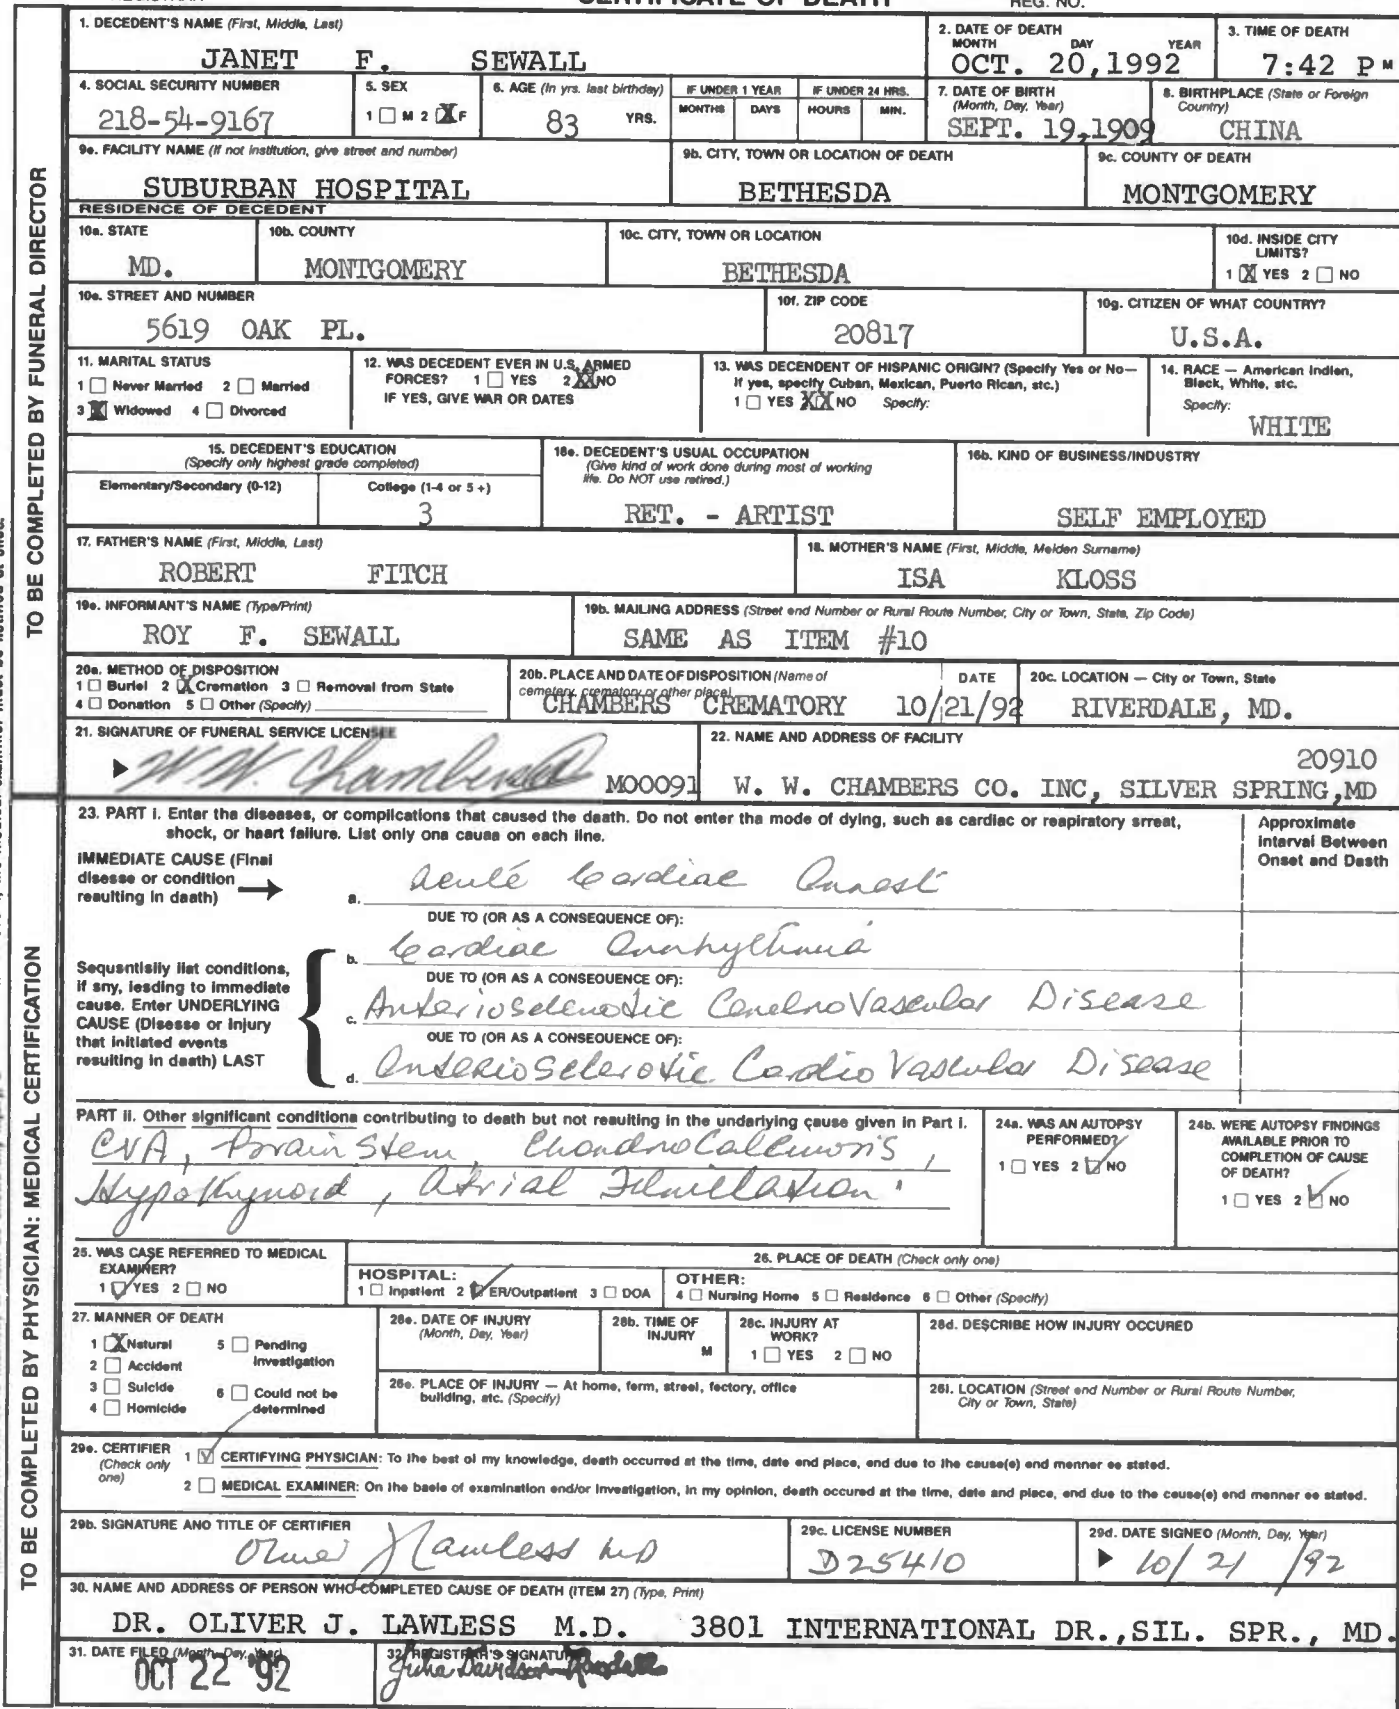 CERTIFICATE OF DEATH
REG. NO.
TO BE COMPLETED BY FUNERAL DIRECTOR
1. DECEDENT'S NAME (First, Middle, Last)
JANET F. SEWALL
2. DATE OF DEATH
MONTH DAY YEAR
OCT. 20,1992
3. TIME OF DEATH
7:42 P M
4. SOCIAL SECURITY NUMBER
218-54-9167
5. SEX
1 ☐ M 2 ☒ F
6. AGE (In yrs. last birthday)
83 YRS.
IF UNDER 1 YEAR
MONTHS DAYS
IF UNDER 24 HRS.
HOURS MIN.
7. DATE OF BIRTH
(Month, Day, Year)
SEPT. 19,1909
8. BIRTHPLACE (State or Foreign
Country)
CHINA
9a. FACILITY NAME (If not institution, give street and number)
SUBURBAN HOSPITAL
9b. CITY, TOWN OR LOCATION OF DEATH
BETHESDA
9c. COUNTY OF DEATH
MONTGOMERY
RESIDENCE OF DECEDENT
10a. STATE
MD.
10b. COUNTY
MONTGOMERY
10c. CITY, TOWN OR LOCATION
BETHESDA
10d. INSIDE CITY
LIMITS?
1 ☒ YES 2 ☐ NO
10e. STREET AND NUMBER
5619 OAK PL.
10f. ZIP CODE
20817
10g. CITIZEN OF WHAT COUNTRY?
U.S.A.
11. MARITAL STATUS
1 ☐ Never Married 2 ☐ Married
3 ☒ Widowed 4 ☐ Divorced
12. WAS DECEDENT EVER IN U.S. ARMED
FORCES? 1 ☐ YES 2 ☒ NO
IF YES, GIVE WAR OR DATES
13. WAS DECENDENT OF HISPANIC ORIGIN? (Specify Yes or No—
If yes, specify Cuban, Mexican, Puerto Rican, etc.)
1 ☐ YES ☒ NO Specify:
14. RACE — American Indian,
Black, White, etc.
Specify:
WHITE
15. DECEDENT'S EDUCATION
(Specify only highest grade completed)
Elementary/Secondary (0-12)
College (1-4 or 5 +)
3
16a. DECEDENT'S USUAL OCCUPATION
(Give kind of work done during most of working
life. Do NOT use retired.)
RET. - ARTIST
16b. KIND OF BUSINESS/INDUSTRY
SELF EMPLOYED
17. FATHER'S NAME (First, Middle, Last)
ROBERT FITCH
18. MOTHER'S NAME (First, Middle, Maiden Surname)
ISA KLOSS
19a. INFORMANT'S NAME (Type/Print)
ROY F. SEWALL
19b. MAILING ADDRESS (Street and Number or Rural Route Number, City or Town, State, Zip Code)
SAME AS ITEM #10
20a. METHOD OF DISPOSITION
1 ☐ Burial 2 ☒ Cremation 3 ☐ Removal from State
4 ☐ Donation 5 ☐ Other (Specify)
20b. PLACE AND DATE OF DISPOSITION (Name of
cemetery, crematory or other place)
DATE
CHAMBERS CREMATORY 10/21/92
20c. LOCATION — City or Town, State
RIVERDALE, MD.
21. SIGNATURE OF FUNERAL SERVICE LICENSEE
W. W. Chambers
M00091
22. NAME AND ADDRESS OF FACILITY
20910
W. W. CHAMBERS CO. INC, SILVER SPRING,MD
TO BE COMPLETED BY PHYSICIAN: MEDICAL CERTIFICATION
23. PART I. Enter the diseases, or complications that caused the death. Do not enter the mode of dying, such as cardiac or respiratory arrest,
shock, or heart failure. List only one cause on each line.
Approximate
Interval Between
Onset and Death
IMMEDIATE CAUSE (Final
disease or condition
resulting in death)
a. Acute Cardiac Arrest
DUE TO (OR AS A CONSEQUENCE OF):
b. Cardiac Arrhythmia
DUE TO (OR AS A CONSEQUENCE OF):
Sequentially list conditions,
if any, leading to immediate
cause. Enter UNDERLYING
CAUSE (Disease or injury
that initiated events
resulting in death) LAST
c. Arteriosclerotic CerebroVascular Disease
DUE TO (OR AS A CONSEQUENCE OF):
d. Arteriosclerotic CardioVascular Disease
PART II. Other significant conditions contributing to death but not resulting in the underlying cause given in Part I.
CVA, Brain Stem, Chondrocalcinosis,
Hypothyroid, Atrial Fibrillation.
24a. WAS AN AUTOPSY
PERFORMED?
1 ☐ YES 2 ☑ NO
24b. WERE AUTOPSY FINDINGS
AVAILABLE PRIOR TO
COMPLETION OF CAUSE
OF DEATH?
1 ☐ YES 2 ☑ NO
25. WAS CASE REFERRED TO MEDICAL
EXAMINER?
1 ☑ YES 2 ☐ NO
26. PLACE OF DEATH (Check only one)
HOSPITAL:
1 ☐ Inpatient 2 ☑ ER/Outpatient 3 ☐ DOA
OTHER:
4 ☐ Nursing Home 5 ☐ Residence 6 ☐ Other (Specify)
27. MANNER OF DEATH
1 ☒ Natural 5 ☐ Pending
Investigation
2 ☐ Accident
3 ☐ Suicide 6 ☐ Could not be
determined
4 ☐ Homicide
28a. DATE OF INJURY
(Month, Day, Year)
28b. TIME OF
INJURY
M
28c. INJURY AT
WORK?
1 ☐ YES 2 ☐ NO
28d. DESCRIBE HOW INJURY OCCURED
28e. PLACE OF INJURY — At home, farm, street, factory, office
building, etc. (Specify)
28f. LOCATION (Street and Number or Rural Route Number,
City or Town, State)
29a. CERTIFIER
(Check only
one)
1 ☑ CERTIFYING PHYSICIAN: To the best of my knowledge, death occurred at the time, date and place, and due to the cause(s) and manner as stated.
2 ☐ MEDICAL EXAMINER: On the basis of examination and/or investigation, in my opinion, death occured at the time, date and place, and due to the cause(s) and manner as stated.
29b. SIGNATURE AND TITLE OF CERTIFIER
Oliver J Lawless MD
29c. LICENSE NUMBER
D25410
29d. DATE SIGNED (Month, Day, Year)
10/21/92
30. NAME AND ADDRESS OF PERSON WHO COMPLETED CAUSE OF DEATH (ITEM 27) (Type, Print)
DR. OLIVER J. LAWLESS M.D. 3801 INTERNATIONAL DR.,SIL. SPR., MD.
31. DATE FILED (Month, Day, Year)
OCT 22 '92
32. REGISTRAR'S SIGNATURE
Julia Davidson-Randall